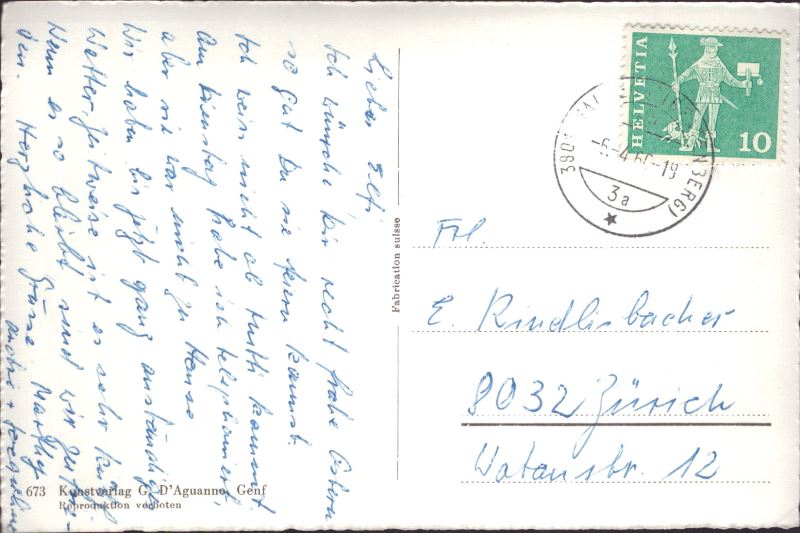 Lieber Elfi
Ich wünsche Dir recht frohe Ostern
so gut Du sie feiern kannst.
Ich weiss nicht ob Rutti kommt.
Am Dienstag habe ich telephoniert,
aber sie war nicht zu Hause
Wir haben bis jetzt ganz anständiges
Wetter, zeitweise ist es sehr
Wenn es so bleibt sind wir zufrie-
den. Herzliche Grüsse Marthy
André + Jacqueline
HELVETIA
10
3801
BERG)
-6.-4.6 -19
3a
Frl.
E. Rindlisbacher
8032 Zürich
Watanstr. 12
Fabrication suisse
673 Kunstverlag G. D'Aguanno, Genf
Reproduktion verboten